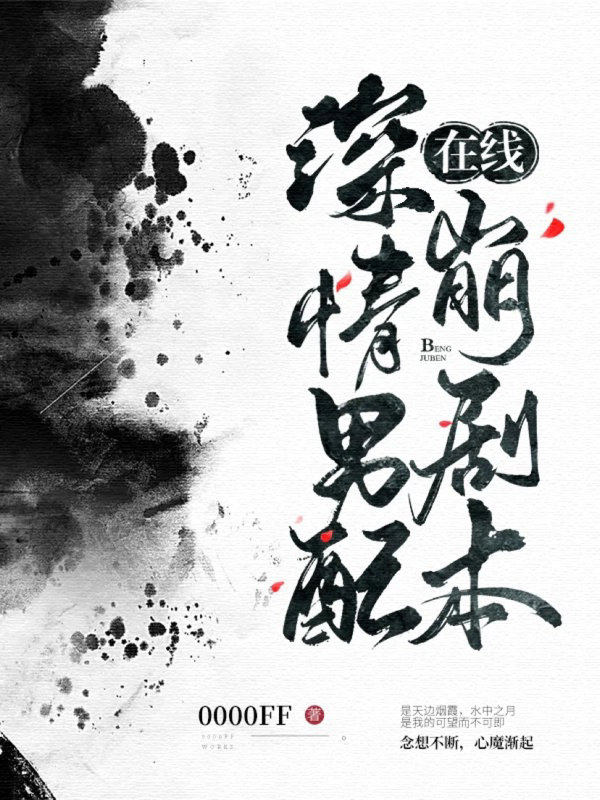 深情男配
在线
崩剧本
BENG
JUBEN
0000FF 著
0000FF
WORKS
是天边烟霞，水中之月
是我的可望而不可即
念想不断，心魔渐起